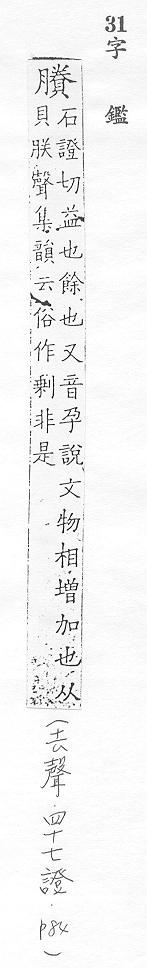 31字 鑑
賸
石證切益也餘也又音孕說文物相增加也从
貝朕聲集韻云俗作剩非是
(去聲.四十七證.p84)